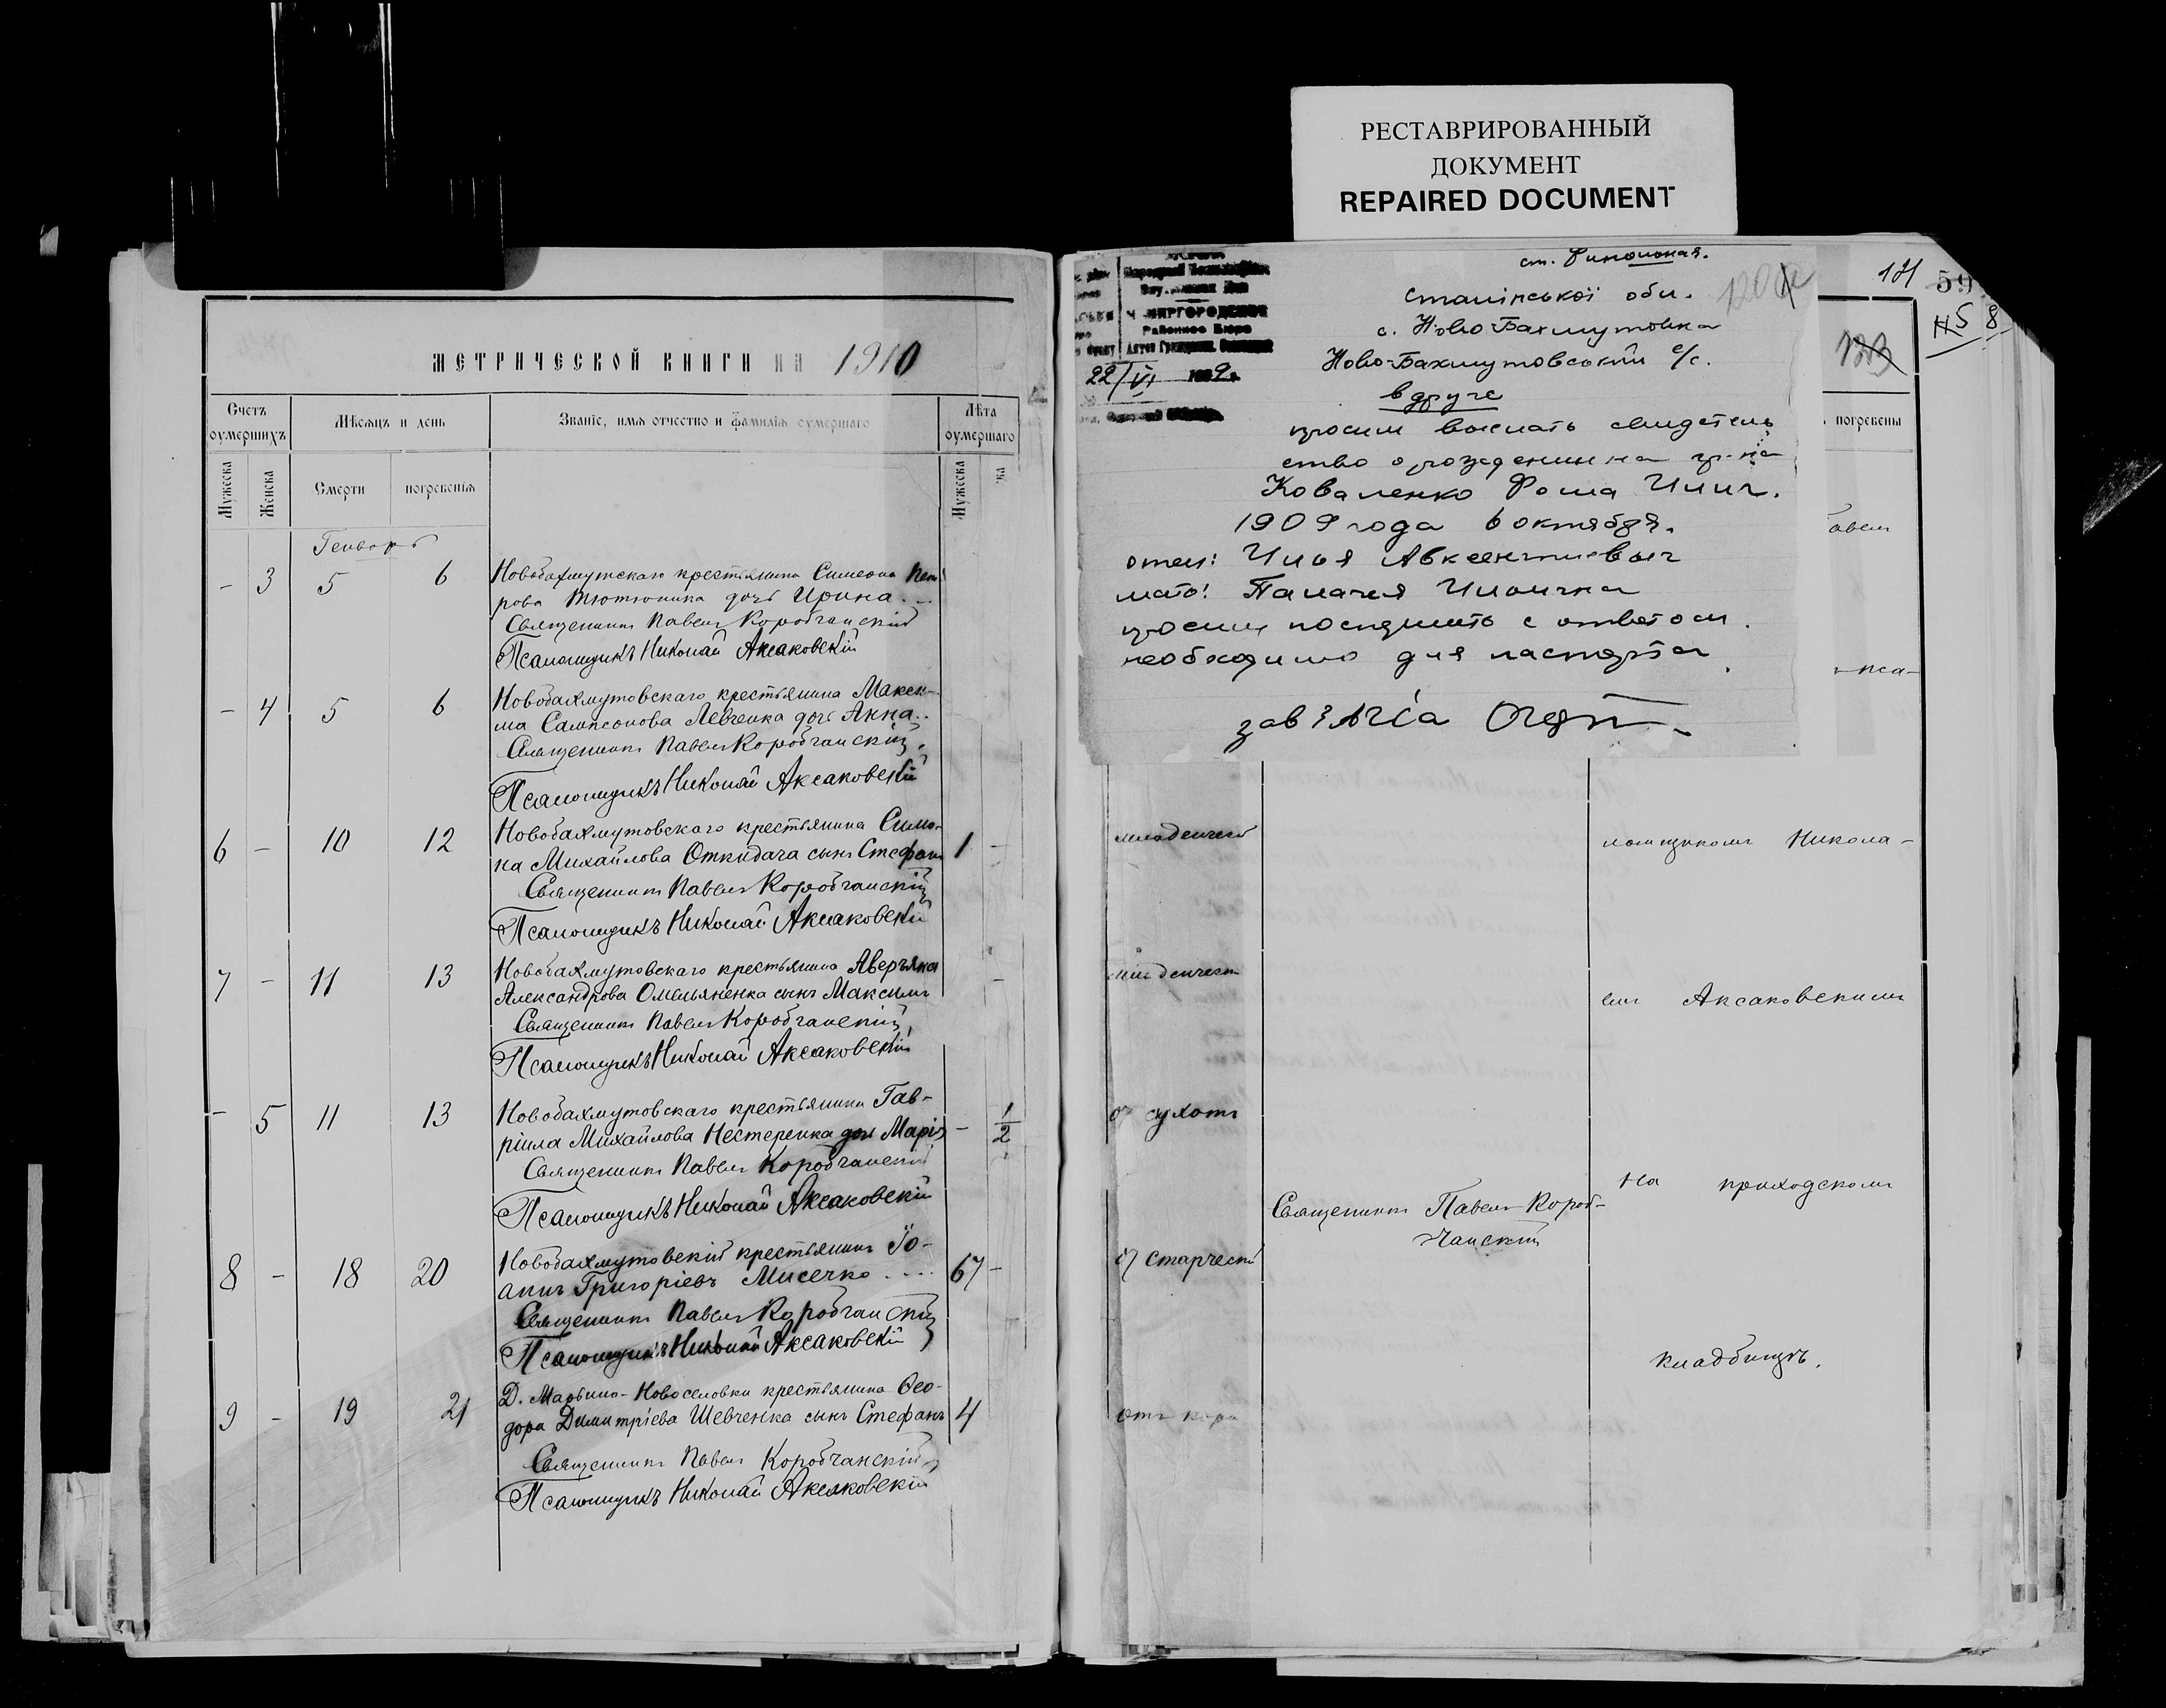 РЕСТАВРИРОВАННЫЙ
ДОКУМЕНТ
REPAIRED DOCUMENT
МЕТРИЧЕСКОЙ КНИГИ НА 1910
Счетъ оумершихъ
Мѣсяцъ и день
Званіе, имя отчество и фамилія оумершаго
Лѣта оумершаго
Мужеска
Женска
Смерти
погребенія
Мужеска
Генварь
- 3 5 6 Новобахмутскаго крестьянина Симеона Пет
рова Тютюника дочь Ирина...
Священникъ Павелъ Коробчанскій
Псаломщикъ Николай Аксаковскій
- 4 5 6 Новобахмутовскаго крестьянина Макси-
ма Сампсонова Левченка дочь Анна..
Священникъ Павелъ Коробчанскій
Псаломщикъ Николай Аксаковскій
6 - 10 12 Новобахмутовскаго крестьянина Симо-
на Михайлова Откидача сынъ Стефанъ 1 -
Священникъ Павелъ Коробчанскій
Псаломщикъ Николай Аксаковскій
7 - 11 13 Новобахмутовскаго крестьянина Аверьяна
Александрова Омельяненка сынъ Максимъ -
Священникъ Павелъ Коробчанскій
Псаломщикъ Николай Аксаковскій
- 5 11 13 Новобахмутовскаго крестьянина Гав-
ріила Михайлова Нестеренка дочь Марія - 1/2
Священникъ Павелъ Коробчанскій
Псаломщикъ Николай Аксаковскій
8 - 18 20 Новобахмутовскій крестьянинъ Іо-
акимъ Григоріевъ Мисечко .... 67 -
Священникъ Павелъ Коробчанскій
Псаломщикъ Николай Аксаковскій
9 - 19 21 Д. Марьино-Новоселовки крестьянина Ѳео-
дора Димитріева Шевченка сынъ Стефанъ 4
Священникъ Павелъ Коробчанскій
Псаломщикъ Николай Аксаковскій
МИРГОРОДСКОЕ
Районное Бюро
22/VI
Сталінської обл.
с. Ново Бахмутовка
Ново-Бахмутовський с/с.
просим выслать свидетель
ство о рождении на гр-на
Коваленко Фома Илич.
1909 года 6 октября.
отец: Илья Авксентиевыч
мать: Палагея Илична
просим поспешить с ответом.
необходимо для паспорта
59
погребены
младенческ
ломщикомъ Никола-
младенческ
емъ Аксаковскимъ
сухотъ
на приходскомъ
Священникъ Павелъ Короб-
чанскій
старческ
кладбищѣ.
отъ